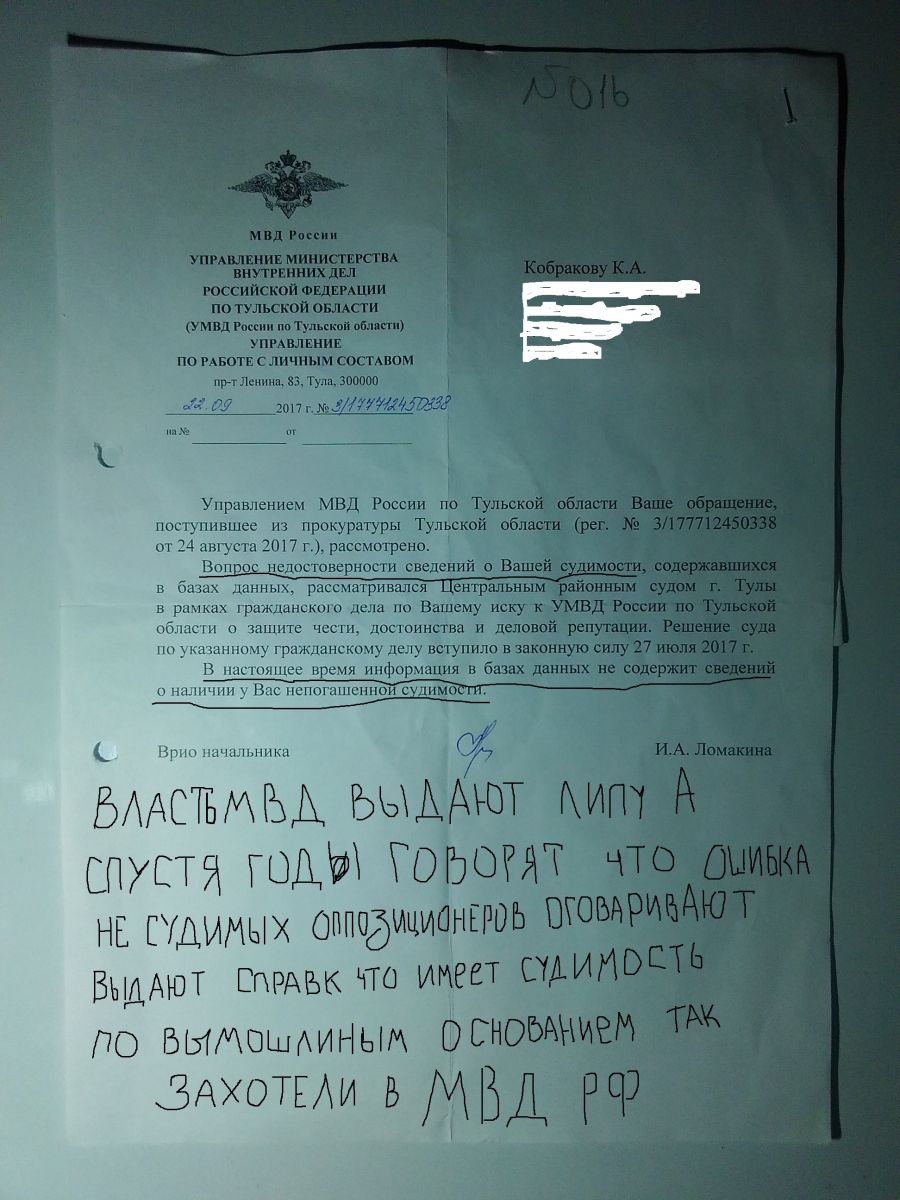 № 016
1
МВД России
УПРАВЛЕНИЕ МИНИСТЕРСТВА
ВНУТРЕННИХ ДЕЛ
РОССИЙСКОЙ ФЕДЕРАЦИИ
ПО ТУЛЬСКОЙ ОБЛАСТИ
(УМВД России по Тульской области)
УПРАВЛЕНИЕ
ПО РАБОТЕ С ЛИЧНЫМ СОСТАВОМ
пр-т Ленина, 83, Тула, 300000
22.09 2017 г. № 3/177712450338
на № от
Кобракову К.А.
Управлением МВД России по Тульской области Ваше обращение,
поступившее из прокуратуры Тульской области (рег. № 3/177712450338
от 24 августа 2017 г.), рассмотрено.
Вопрос недостоверности сведений о Вашей судимости, содержавшихся
в базах данных, рассматривался Центральным районным судом г. Тулы
в рамках гражданского дела по Вашему иску к УМВД России по Тульской
области о защите чести, достоинства и деловой репутации. Решение суда
по указанному гражданскому делу вступило в законную силу 27 июля 2017 г.
В настоящее время информация в базах данных не содержит сведений
о наличии у Вас непогашенной судимости.
Врио начальника И.А. Ломакина
ВЛАСТЬ МВД ВЫДАЮТ ЛИПУ А
СПУСТЯ ГОДЫ ГОВОРЯТ ЧТО ОШИБКА
НЕ СУДИМЫХ ОППОЗИЦИОНЕРОВ ОГОВАРИВАЮТ
ВЫДАЮТ СПРАВК ЧТО ИМЕЕТ СУДИМОСТЬ
ПО ВЫМОШЛИНЫМ ОСНОВАНИЕМ ТАК
ЗАХОТЕЛИ В МВД РФ